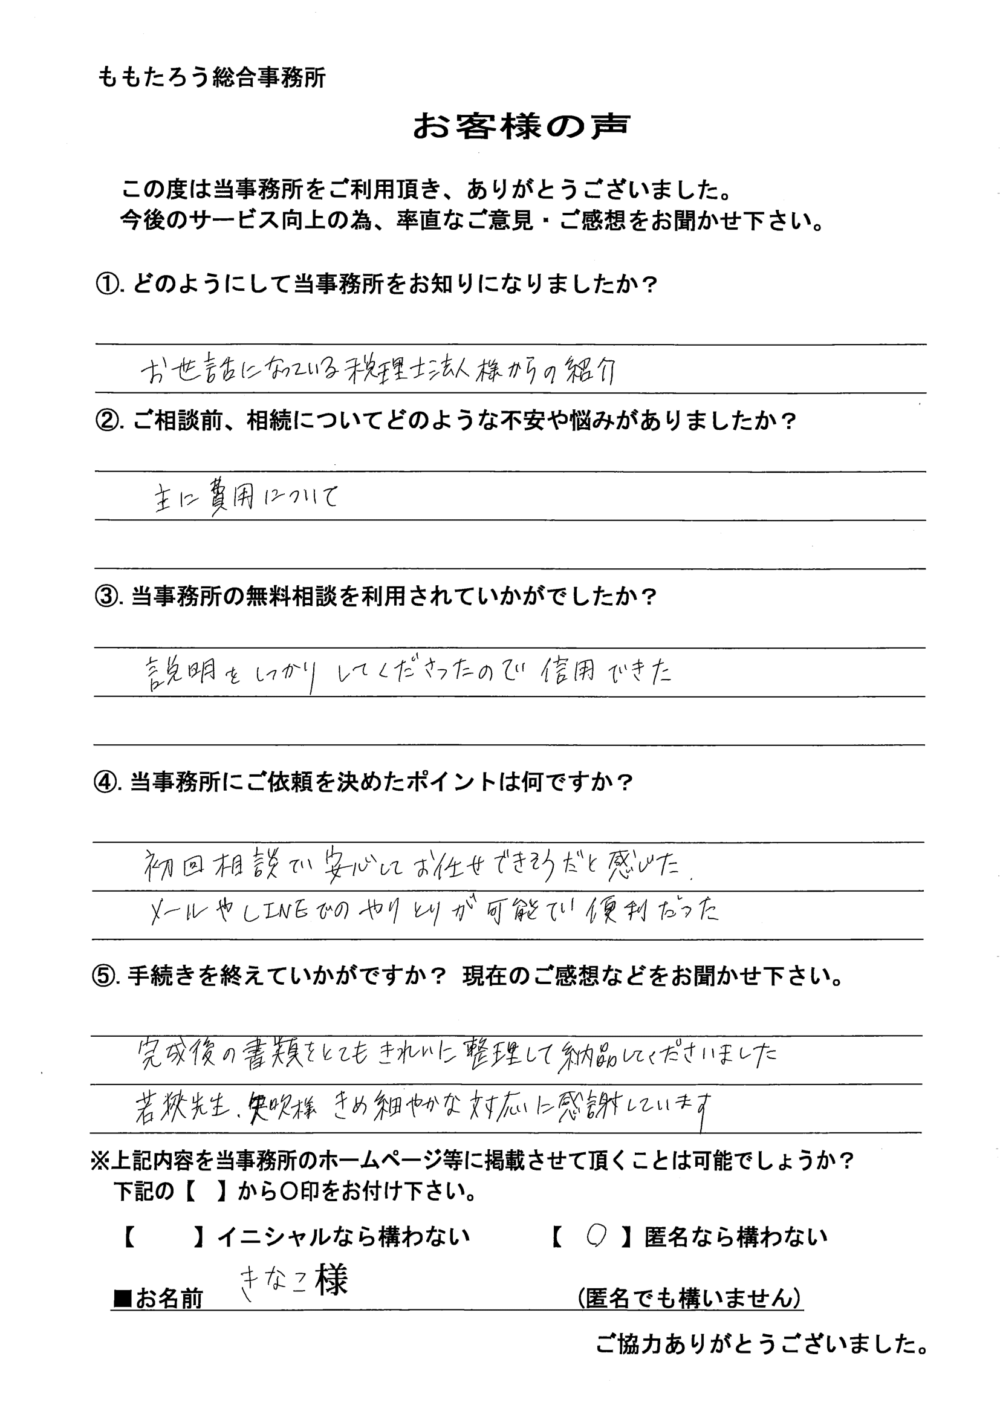 ももたろう総合事務所
お客様の声
この度は当事務所をご利用頂き、ありがとうございました。
今後のサービス向上の為、率直なご意見・ご感想をお聞かせ下さい。
①. どのようにして当事務所をお知りになりましたか？
お世話になっている税理士法人様からの紹介
②. ご相談前、相続についてどのような不安や悩みがありましたか？
主に費用について
③. 当事務所の無料相談を利用されていかがでしたか？
説明をしっかりしてくださったので信用できた
④. 当事務所にご依頼を決めたポイントは何ですか？
初回相談で安心してお任せできそうだと感じた.
メールやLINEでのやりとりが可能で便利だった
⑤. 手続きを終えていかがですか？ 現在のご感想などをお聞かせ下さい。
完成後の書類をとてもきれいに整理して納品してくださいました
若狭先生、矢吹様 きめ細やかな対応に感謝しています
※上記内容を当事務所のホームページ等に掲載させて頂くことは可能でしょうか？
下記の【　】から〇印をお付け下さい。
【　　】イニシャルなら構わない　【 〇 】匿名なら構わない
■お名前 きなこ様 (匿名でも構いません)
ご協力ありがとうございました。